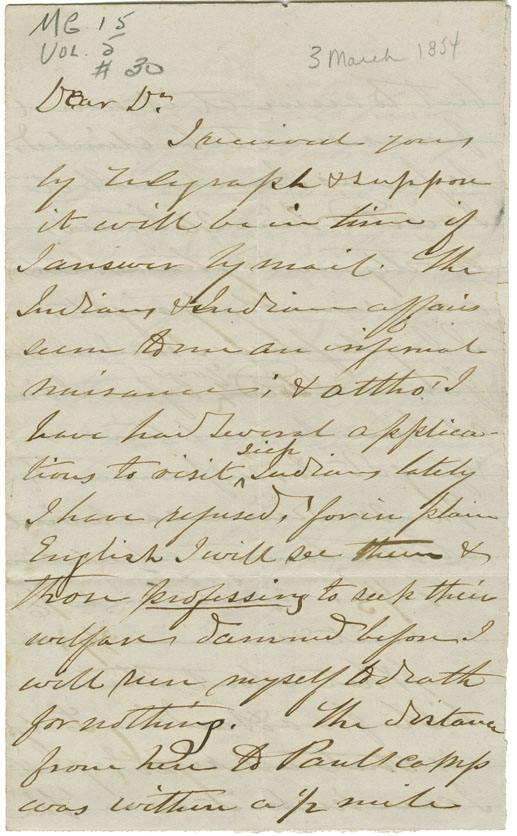 MG. 15
VOL. 5
# 30
3 March 1854
Dear Dr.
I received yours
by Telegraph & suppose
it will be in time if
I answer by mail. The
Indians & Indian affairs
seem to me an infernal
nuisance; & altho' I
have had several applica-
tions to visit sick Indians lately
I have refused, for in plain
English I will see them &
those professing to seek their
welfare damned before I
will run myself to death
for nothing. The distance
from here to Pauls camp
was within a ½ mile